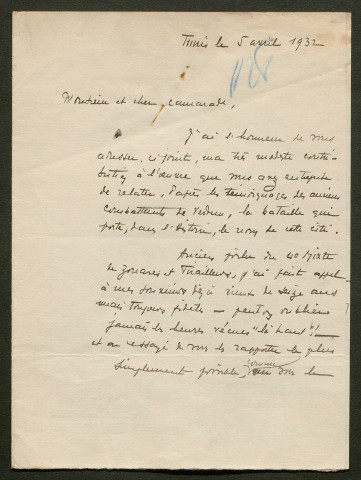 Tunis le 5 avril 1932
Monsieur et cher camarade,
J'ai l'honneur de vous
adresser, ci-joint, ma très modeste contri-
bution à l'œuvre que vous avez entreprise
de relater, d'après les témoignages des anciens
combattants de Verdun, la bataille qui
porte, dans l'Histoire, le nom de cette cité.
Ancien du 4e Mixte
de Zouaves et Tirailleurs, j'ai fait appel
à mes souvenirs déjà vieux de seize ans
mais toujours fidèles – peut-on oublier
jamais les heures vécues "là haut"! –
et ai essayé de vous les rapporter le plus
simplement possible, sur le